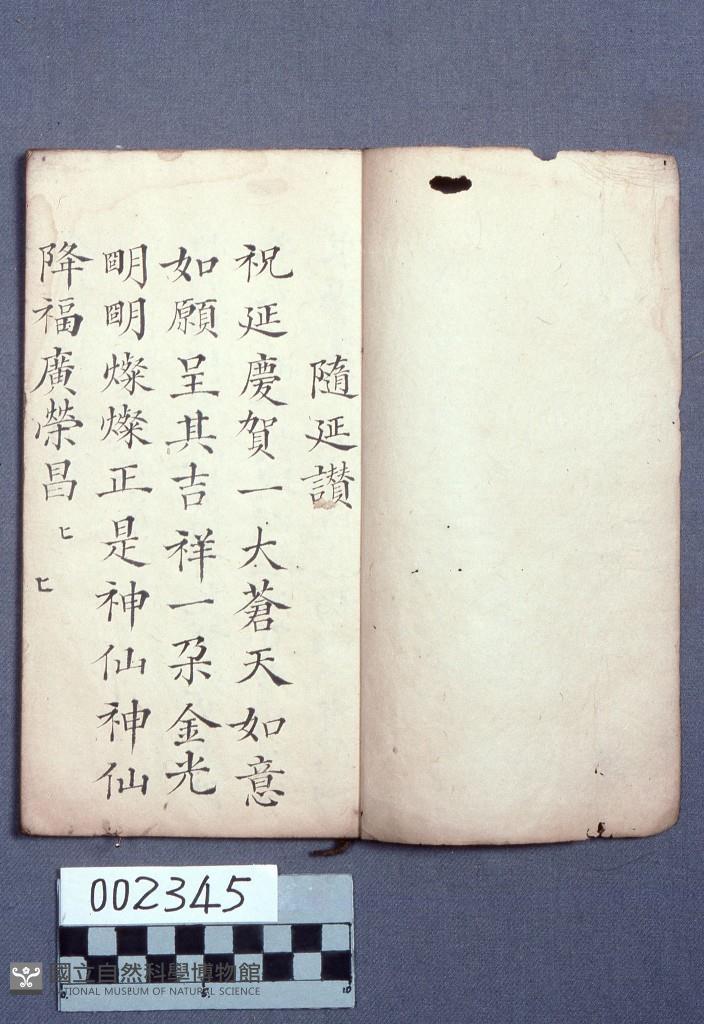 隨延讃
祝延慶賀一太蒼天如意
如願呈其吉祥一朶金光
明明燦燦正是神仙神仙
降福廣榮昌
002345
國立自然科學博物館
NATIONAL MUSEUM OF NATURAL SCIENCE
0 5 10